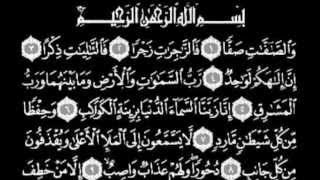 بِسْمِ اللَّهِ الرَّحْمَٰنِ الرَّحِيمِ
وَالصَّٰٓفَّٰتِ صَفًّا ١ فَالزَّٰجِرَٰتِ زَجْرًا ٢ فَالتَّٰلِيَٰتِ ذِكْرًا ٣
إِنَّ إِلَٰهَكُمْ لَوَٰحِدٌ ٤ رَّبُّ السَّمَٰوَٰتِ وَالْأَرْضِ وَمَا بَيْنَهُمَا وَرَبُّ
الْمَشَٰرِقِ ٥ إِنَّا زَيَّنَّا السَّمَآءَ الدُّنْيَا بِزِينَةٍ الْكَوَاكِبِ ٦ وَحِفْظًا
مِّن كُلِّ شَيْطَٰنٍ مَّارِدٍ ٧ لَّا يَسَّمَّعُونَ إِلَى الْمَلَإِ الْأَعْلَىٰ وَيُقْذَفُونَ
مِن كُلِّ جَانِبٍ ٨ دُحُورًا وَلَهُمْ عَذَابٌ وَاصِبٌ ٩ إِلَّا مَنْ خَطِفَ